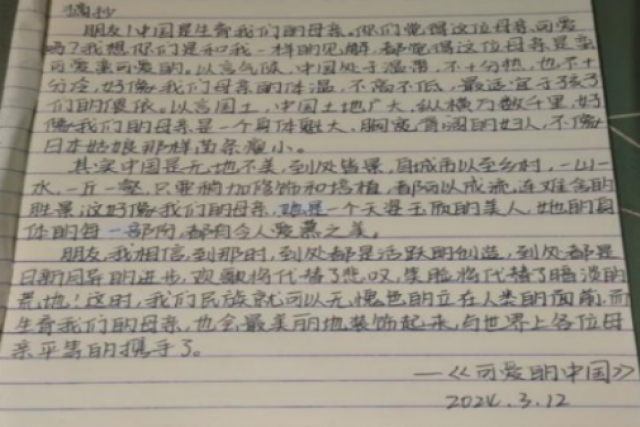 摘抄
朋友!中国是生育我们的母亲。你们觉得这位母亲可爱
吗?我想你们是和我一样的见解,都觉得这位母亲是蛮
可爱蛮可爱的。以言气候,中国处于温带,不十分热,也不十
分冷,好像我们母亲的体温,不高不低,最适宜于孩子
们的偎依。以言国土,中国土地广大,纵横万数千里,好
像我们的母亲是一个身体魁大、胸宽背阔的妇人,不像
日本姑娘那样苗条瘦小。
其实中国是无地不美,到处皆景,自城市以至乡村,一山一
水,一丘一壑,只要稍加修饰和培植,都可以成流连难舍的
胜景;这好像我们的母亲,她是一个天姿玉质的美人,她的身
体的每一部份,都有令人爱慕之美。
朋友,我相信,到那时,到处都是活跃的创造,到处都是
日新月异的进步,欢歌将代替了悲叹,笑脸将代替了
荒地!这时,我们民族就可以无愧色的立在人类的面前,而
生育我们的母亲,也会最美丽地装饰起来,与世界上各位母
亲平等的携手了。
—《可爱的中国》
2024.3.12